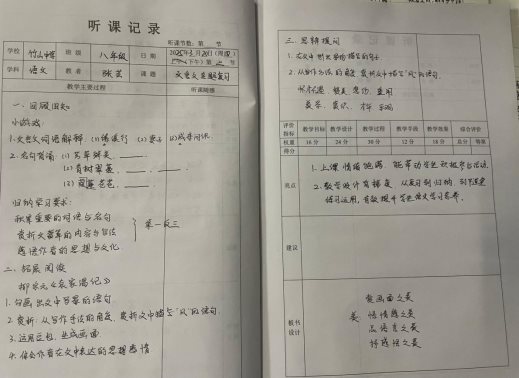 听课记录
听课节数：第 节
学校 竹山中学 班级 八年级 日期 2025年3月20日
上午(下午)第 节
学科 语文 教者 张芸 课题 文言文主题复习
教学主要过程 听课随感
一、回顾旧知
小游戏：
1.文言文词语解释：(1)缘溪行 (2)妻子 (3)咸来问讯
2.名句背诵：(1)芳草鲜美，
(2)青树翠蔓，
(3)蒹葭苍苍，
归纳学习要求：
积累重要的词语与名句
赏析文章的内容与写法
感悟作者的思想与文化
举一反三
二、拓展阅读
柳宗元《袁家渴记》
1.勾画出文中写景的语句
2.赏析：从写作手法的角度，赏析文中描写"风"的语句。
3.运用豆包，生成画面
4.体会作者在文中表达的思想感情
三、思辨提问
1.在文中
2.从写作方法的角度，赏析文中描写"风"的语句。
评价指标 教学目标 教学设计 教学过程 教学手段 教学效果 综合评价
权重 16分 24分 30分 12分 18分 总分 等第
得分
亮点
1.上课情绪饱满，能带动学生积极参与活动。
2.教学设计有梯度，从复习到归纳，到
练习运用，有效提升学生语文学习素养。
建议
板书设计
美
赏画面之美
悟情感之美
品语言之美